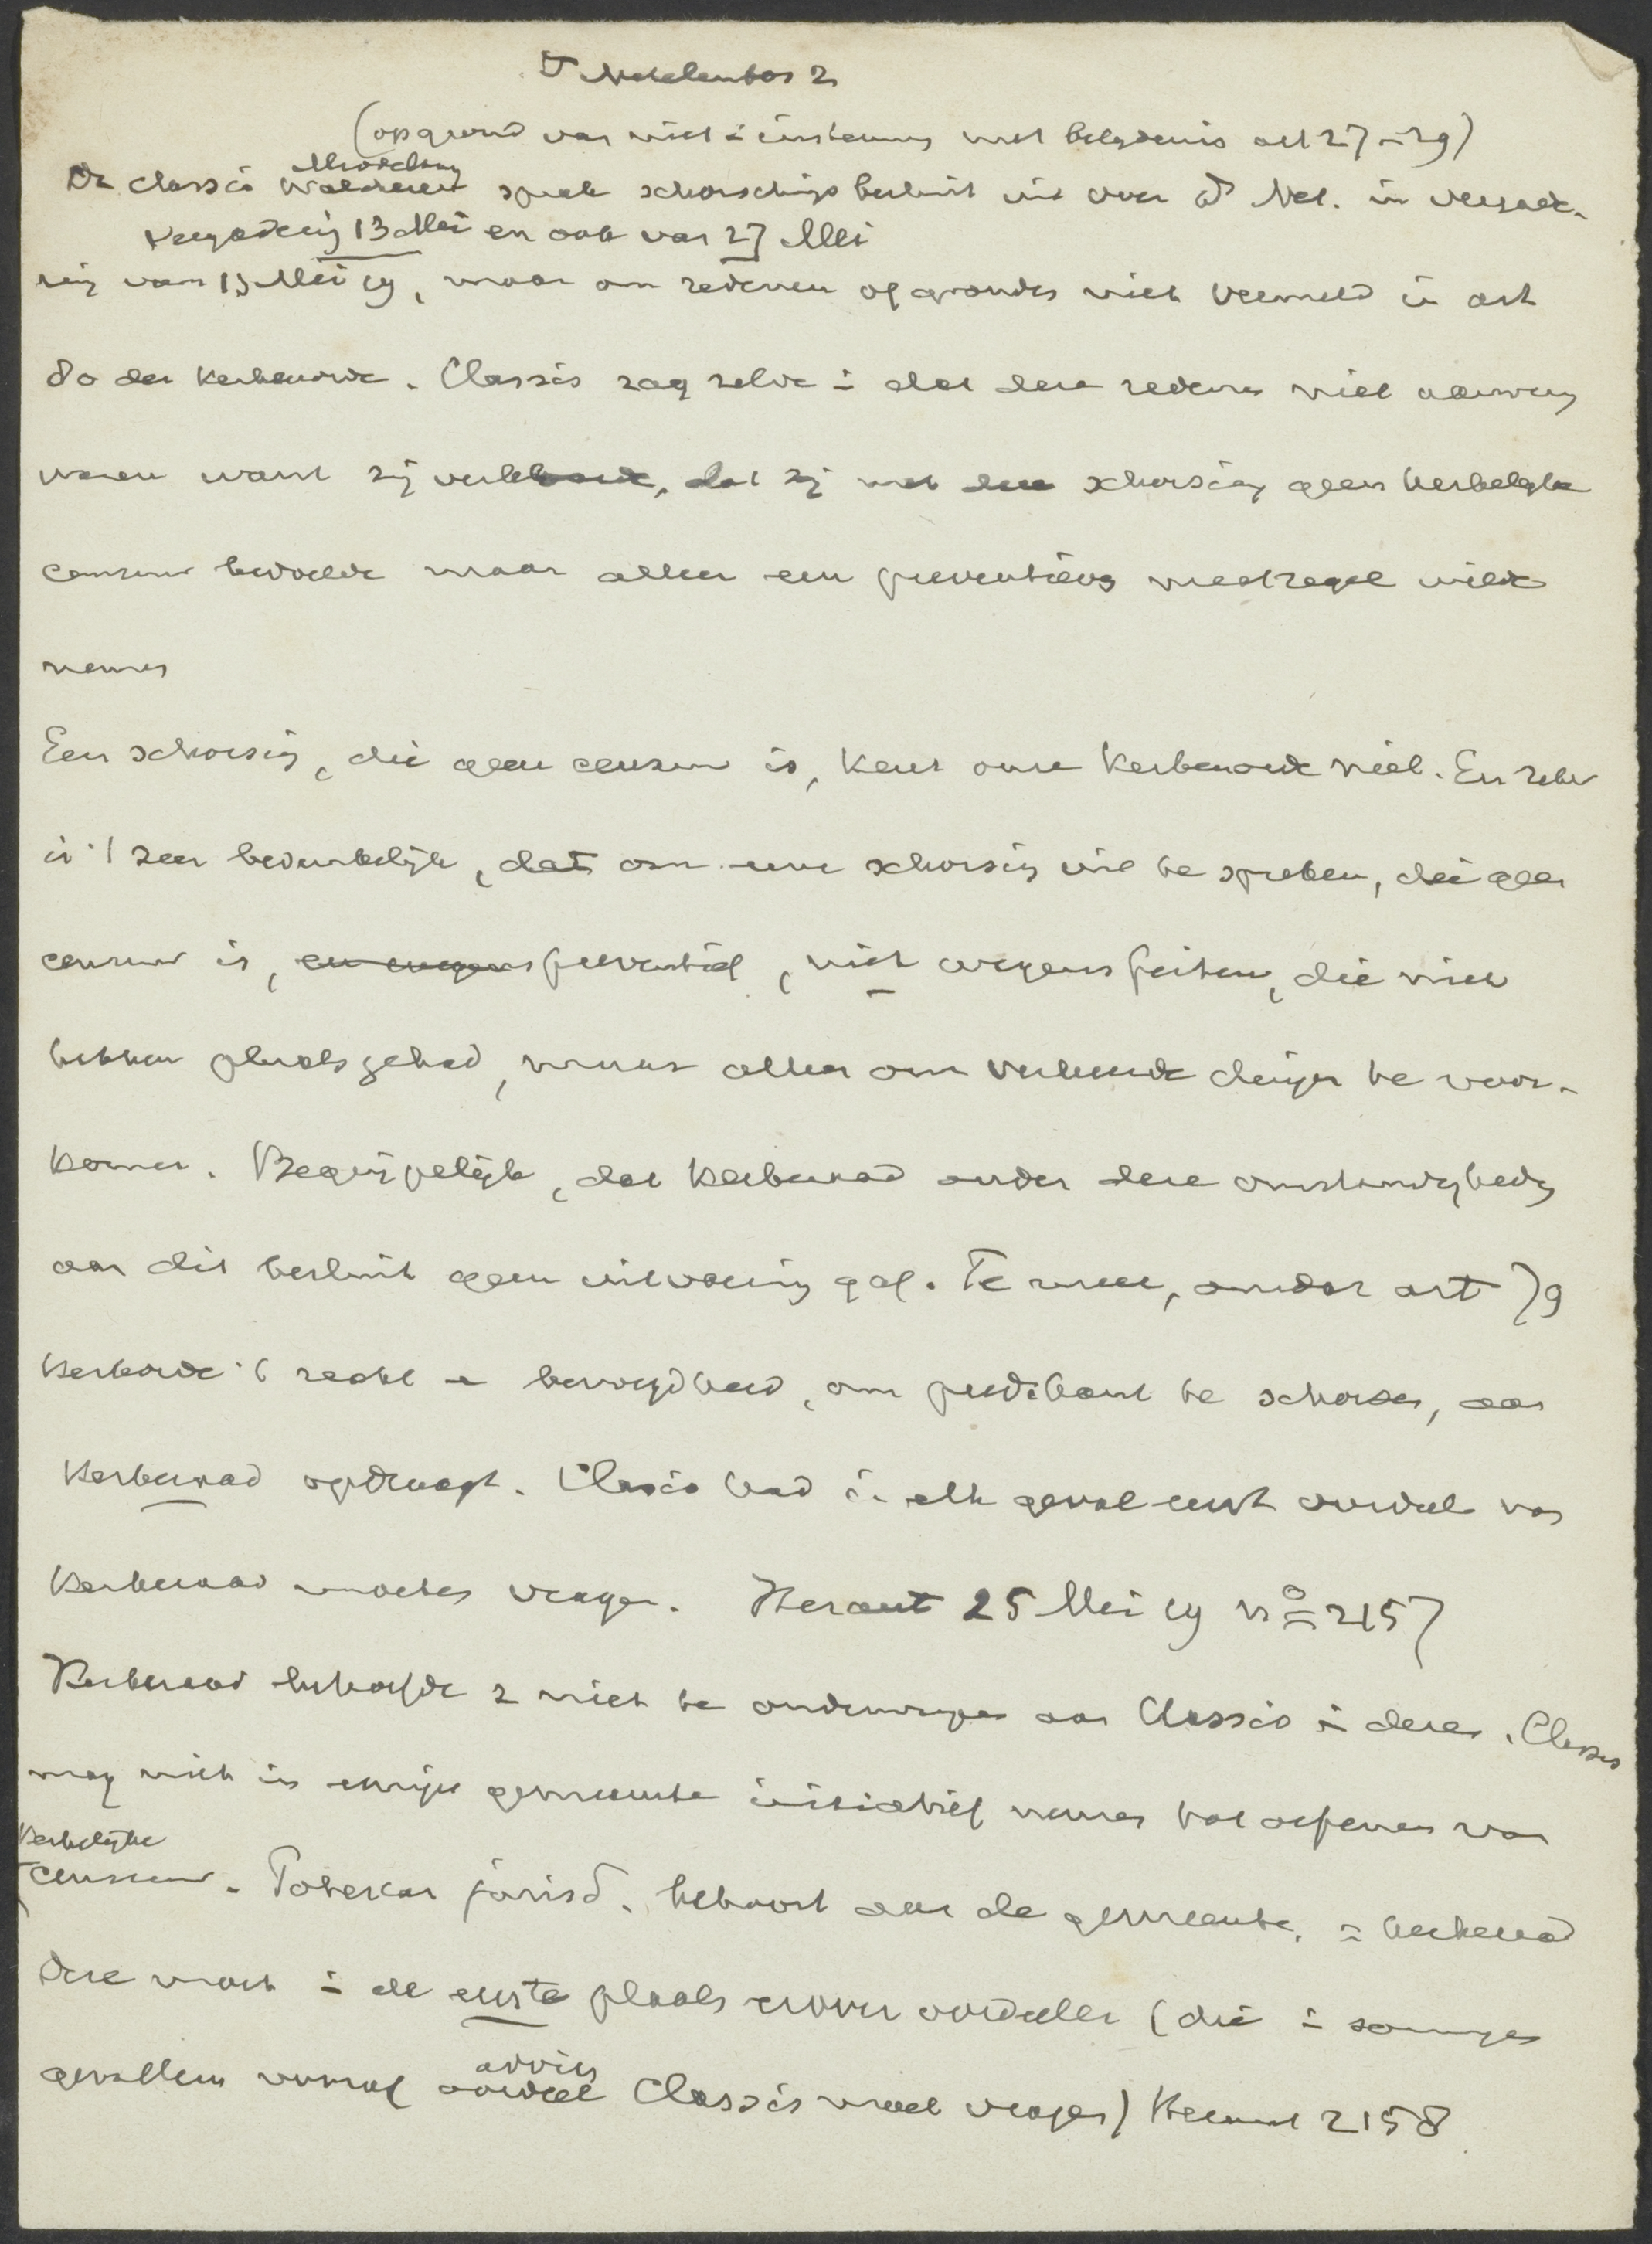 Ds Netelenbos 2
(op grond van niet instemmg met belydenis art 27-29)
De classis Middelburg Walcheren sprak schorschings besluit uit over Ds Net. in vergade-
Vergadering 13 Mei en ook van 27 Mei
ring van 13 Mei 19, maar om redenen of gronden niet vermeld in art
80 der Kerkenorde. Classis zag zelve in dat deze redenen niet aanwezig
waren want zij verklaarde, dat zij met deze schorsing geen kerkelyke
censuur bedoelde maar alleen een preventieve maatregel wilde
nemen
Een schorsing, die geen censuur is, kent onze Kerkenorde niet. En zeker
is 't zeer bedenkelijk, dat om eene schorsing uit te spreken, die geen
censuur is, en wegens preventief, niet wegens feiten, die niet
hebben plaats gehad, maar alleen om verkeerde dingen te voor-
komen. Begrijpelijk, dat Kerkeraad onder deze omstandigheden
aan dit besluit geen uitvoering gaf. Te meer, omdat art 79
Kerkorde 't recht en bevoegdheid, om predikant te schorsen, aan
Kerkeraad opdraagt. Classis had in elk geval eerst oordeel van
Kerkeraad moeten vragen. Heraut 25 Mei 19 No 2157
Kerkeraad behoefde z niet te onderwerpen aan Classis in deze. Classis
mag niet in eenige gemeente initiatief nemen tot oefenen van
Kerkelijke
censuur. Potestas jurisd. behoort aan de gemeente, = kerkeraad
Deze moet in de eerste plaats erover oordeelen (die in sommige
gevallen vooraf advies oordeel Classis moet vragen) Heraut 2158